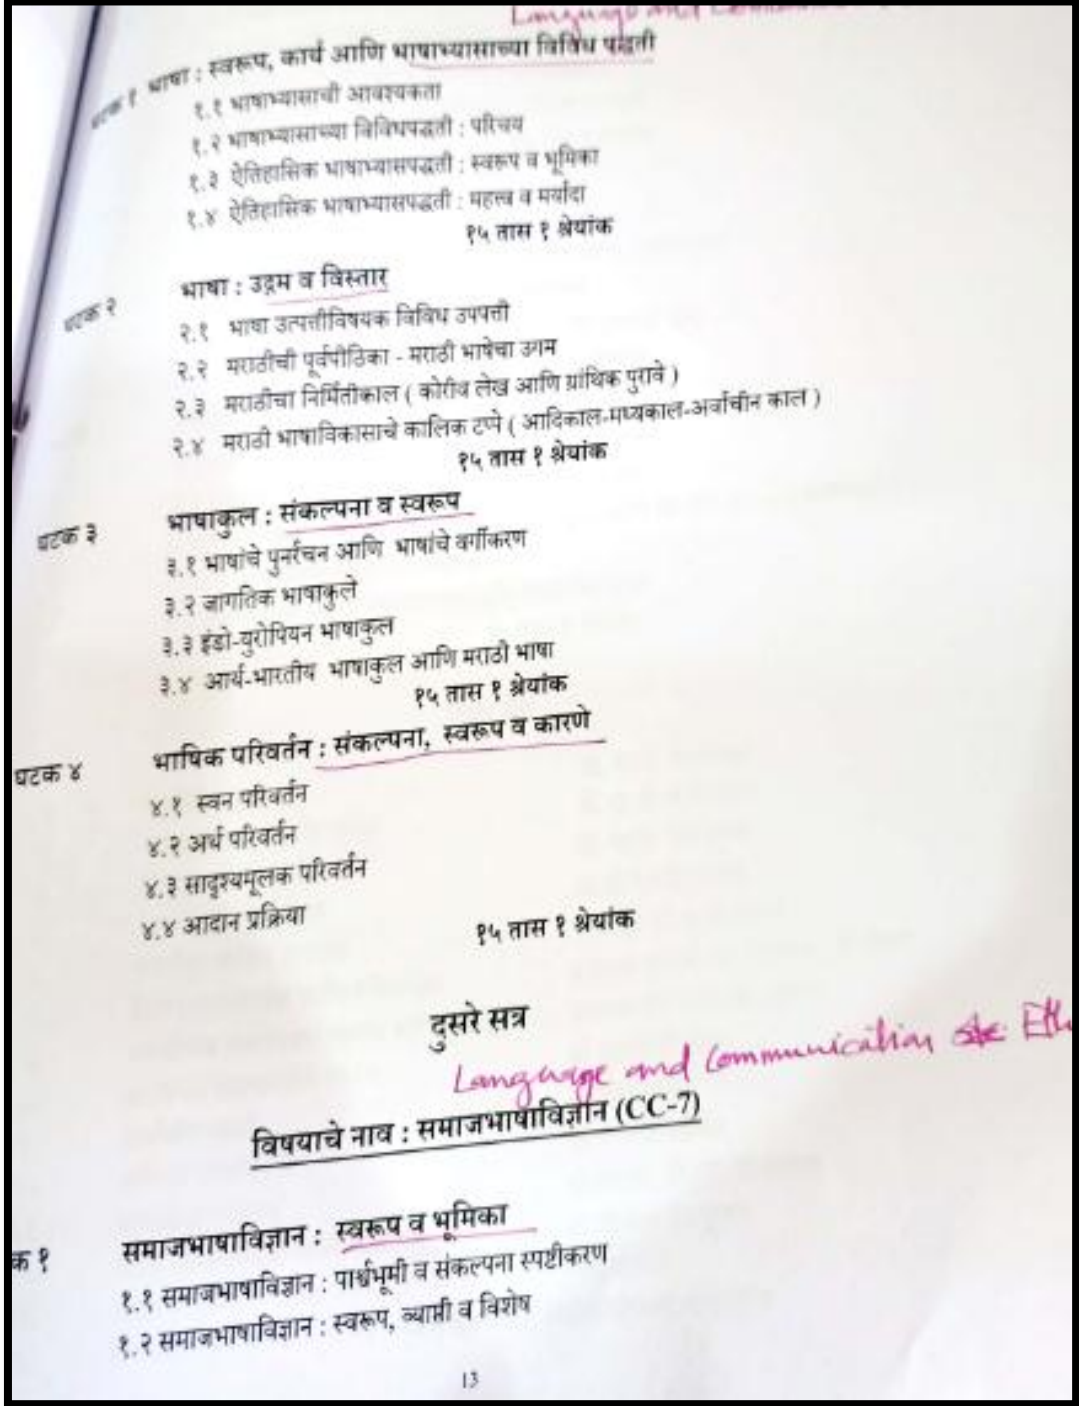 Language and Communication
घटक १ भाषा : स्वरूप, कार्य आणि भाषाभ्यासाच्या विविध पद्धती
१.१ भाषाभ्यासाची आवश्यकता
१.२ भाषाभ्यासाच्या विविधपद्धती : परिचय
१.३ ऐतिहासिक भाषाभ्यासपद्धती : स्वरूप व भूमिका
१.४ ऐतिहासिक भाषाभ्यासपद्धती : महत्त्व व मर्यादा
१५ तास १ श्रेयांक
घटक २ भाषा : उद्गम व विस्तार
२.१ भाषा उत्पत्तीविषयक विविध उपपत्ती
२.२ मराठीची पूर्वपीठिका - मराठी भाषेचा उगम
२.३ मराठीचा निर्मितीकाल ( कोरीव लेख आणि ग्रांथिक पुरावे )
२.४ मराठी भाषाविकासाचे कालिक टप्पे ( आदिकाल-मध्यकाल-अर्वाचीन काल )
१५ तास १ श्रेयांक
घटक ३ भाषाकुल : संकल्पना व स्वरूप
३.१ भाषांचे पुनर्रचन आणि भाषांचे वर्गीकरण
३.२ जागतिक भाषाकुले
३.३ इंडो-युरोपियन भाषाकुल
३.४ आर्य-भारतीय भाषाकुल आणि मराठी भाषा
१५ तास १ श्रेयांक
घटक ४ भाषिक परिवर्तन : संकल्पना, स्वरूप व कारणे
४.१ स्वन परिवर्तन
४.२ अर्थ परिवर्तन
४.३ सादृश्यमूलक परिवर्तन
४.४ आदान प्रक्रिया
१५ तास १ श्रेयांक
दुसरे सत्र
Language and Communication Eth
विषयाचे नाव : समाजभाषाविज्ञान (CC-7)
क १ समाजभाषाविज्ञान : स्वरूप व भूमिका
१.१ समाजभाषाविज्ञान : पार्श्वभूमी व संकल्पना स्पष्टीकरण
१.२ समाजभाषाविज्ञान : स्वरूप, व्याप्ती व विशेष
13